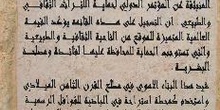 المنبثقة عن المؤتمر الدولي لحماية التراث الثقافي
والطبيعي. ان التسجيل على هذه القائمة يؤكد القيمة
العالمية المتميزة للموقع من الناحية الثقافية والطبيعية
والتي تستوجب الحماية للمحافظة عليها لفائدة ومصلحة
البشرية
شيد هذا البناء الاموي في مطلع القرن الثامن الميلادي
واستخدم كمحطة استراحة في البادية للقوافل الرسمية